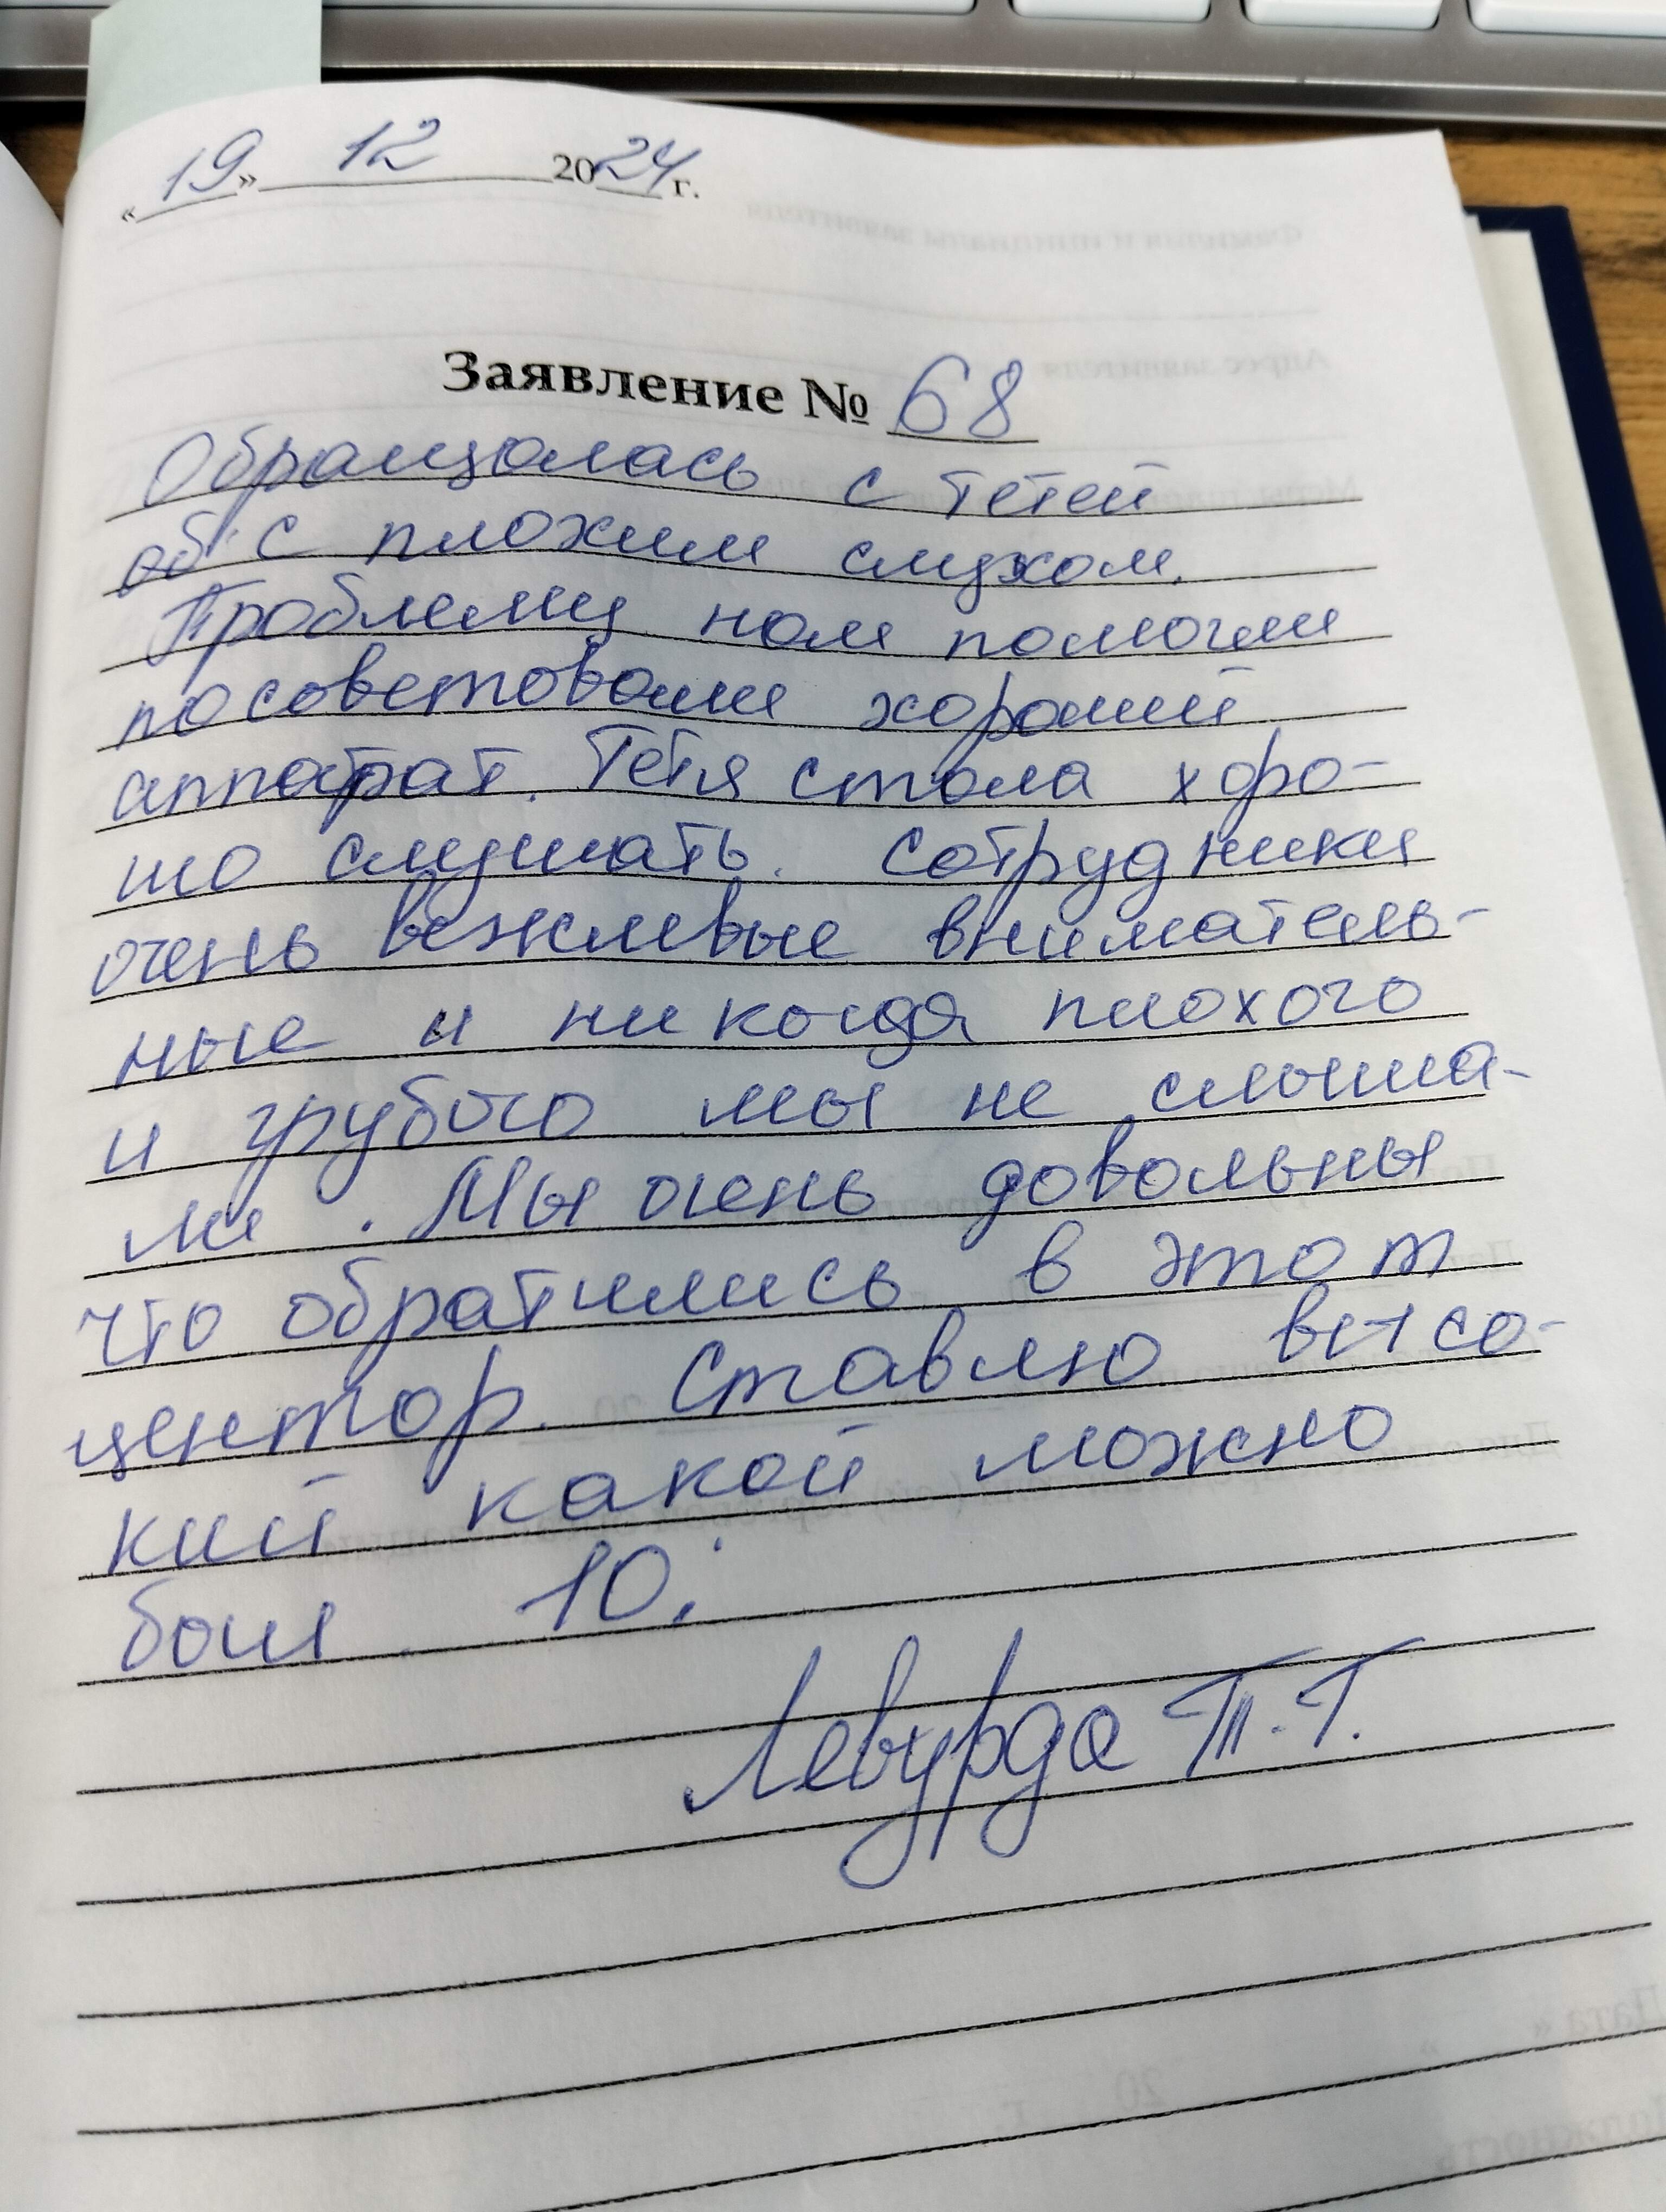 «19» 12 2024 г.
Заявление № 68
Обращалась с тетей
об с плохим слухом.
Проблему нам помогли
посоветовали хороший
аппарат. Тетя стала хоро-
шо слушать. Сотрудники
очень вежливые вниматель-
ные и никогда плохого
и грубого мы не слыша-
ли. Мы очень довольны
что обратились в этот
центор. Ставлю высо-
кий какой можно
бал 10.
Левурда Т.Г.